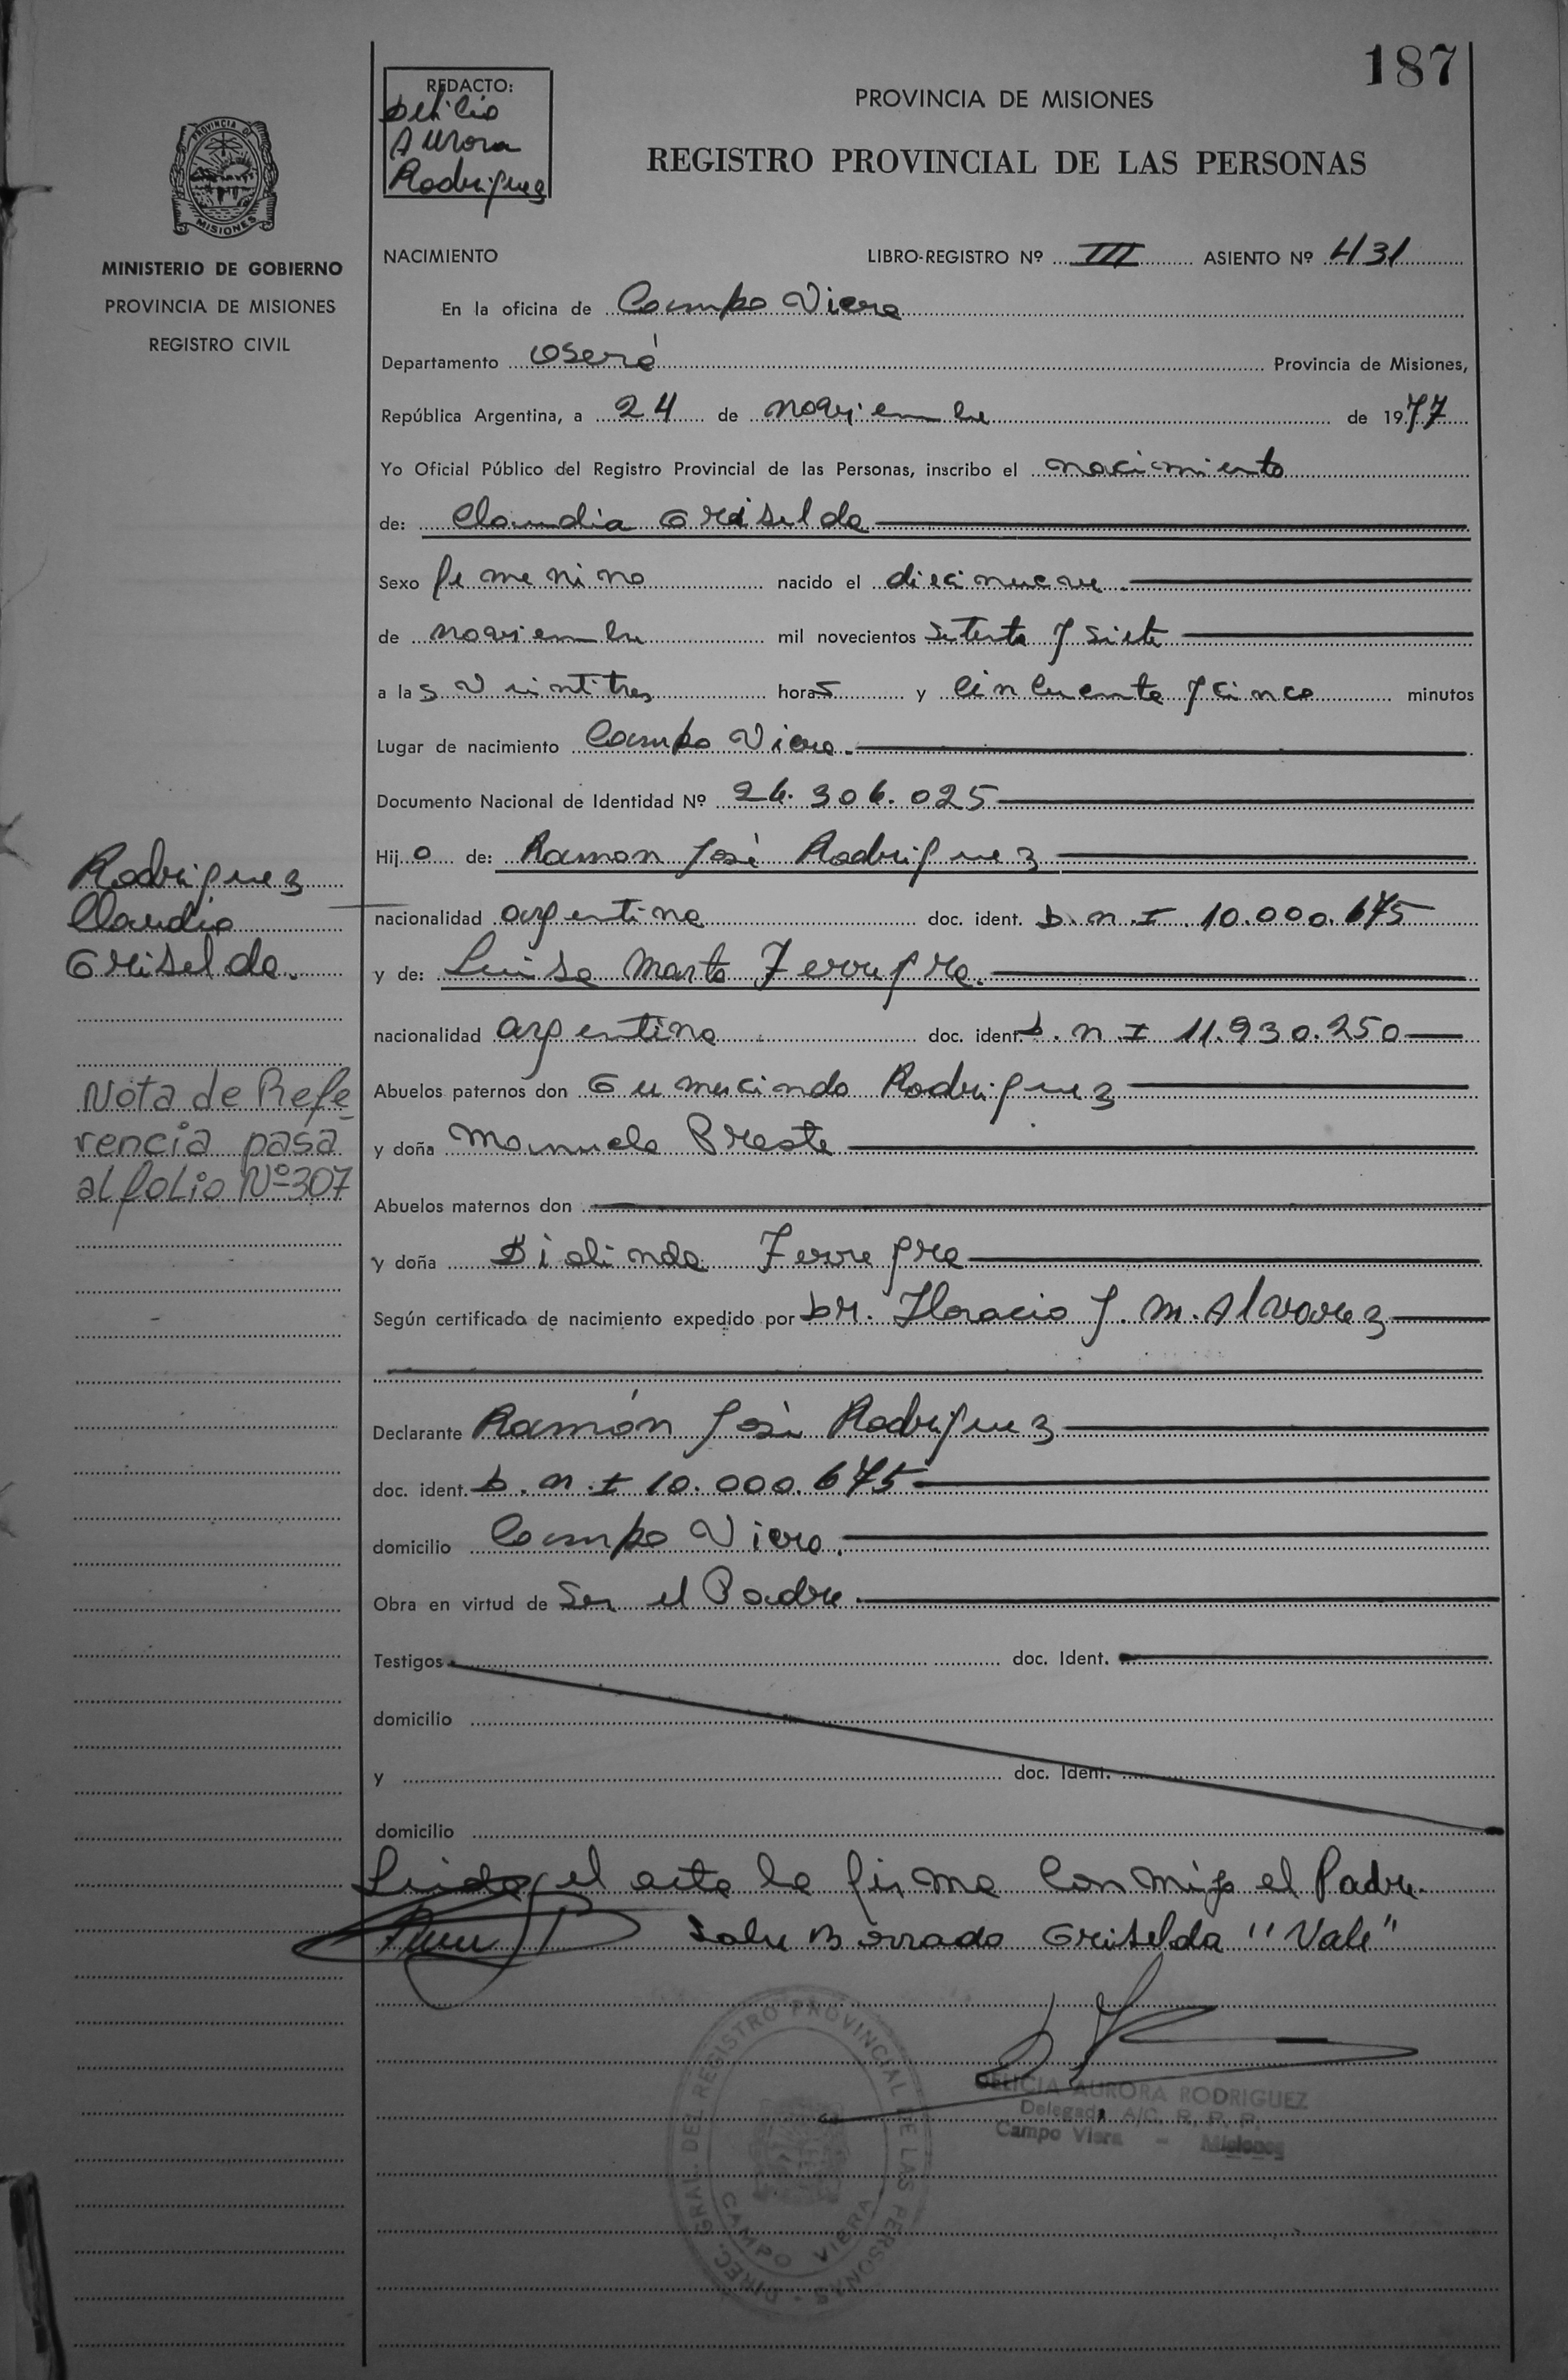 187
REDACTO:
Delicia
Aurora
Rodriguez
PROVINCIA DE MISIONES
REGISTRO PROVINCIAL DE LAS PERSONAS
PROVINCIA DE
MISIONES
MINISTERIO DE GOBIERNO
PROVINCIA DE MISIONES
REGISTRO CIVIL
NACIMIENTO LIBRO-REGISTRO Nº III ASIENTO Nº 431
En la oficina de Campo Viera
Departamento Oberá Provincia de Misiones,
República Argentina, a 24 de noviembre de 1977
Yo Oficial Público del Registro Provincial de las Personas, inscribo el nacimiento
de: Claudia Griselda
Sexo femenino nacido el diecinueve
de noviembre mil novecientos setenta y siete
a las veintitres horas y cincuenta y cinco minutos
Lugar de nacimiento Campo Viera.
Documento Nacional de Identidad Nº 26.306.025
Hija de: Ramon José Rodriguez
nacionalidad argentina doc. ident. D.N.I 10.000.675
y de: Luisa Marta Ferreyra.
nacionalidad argentina doc. ident. D.N.I 11.930.250
Abuelos paternos don Gumecindo Rodriguez
y doña Manuela Preste
Abuelos maternos don
y doña Diolinda Ferreyra
Según certificado de nacimiento expedido por Dr. Horacio J. M. Alvarez
Declarante Ramón José Rodriguez
doc. ident. D.N.I 10.000.675
domicilio Campo Viera.
Obra en virtud de ser el Padre.
Testigos doc. Ident.
domicilio
y doc. Ident.
domicilio
Leida el acta la firma conmigo el Padre.
Sobre Borrado Griselda "Vale"
Rodriguez
Claudia
Griselda.
Nota de Refe
rencia pasa
al folio Nº 307
DIREC. GRAL. DEL REGISTRO PROVINCIAL DE LAS PERSONAS
CAMPO VIERA
DELICIA AURORA RODRIGUEZ
Delegada A/C. R. P. P.
Campo Viera - Misiones